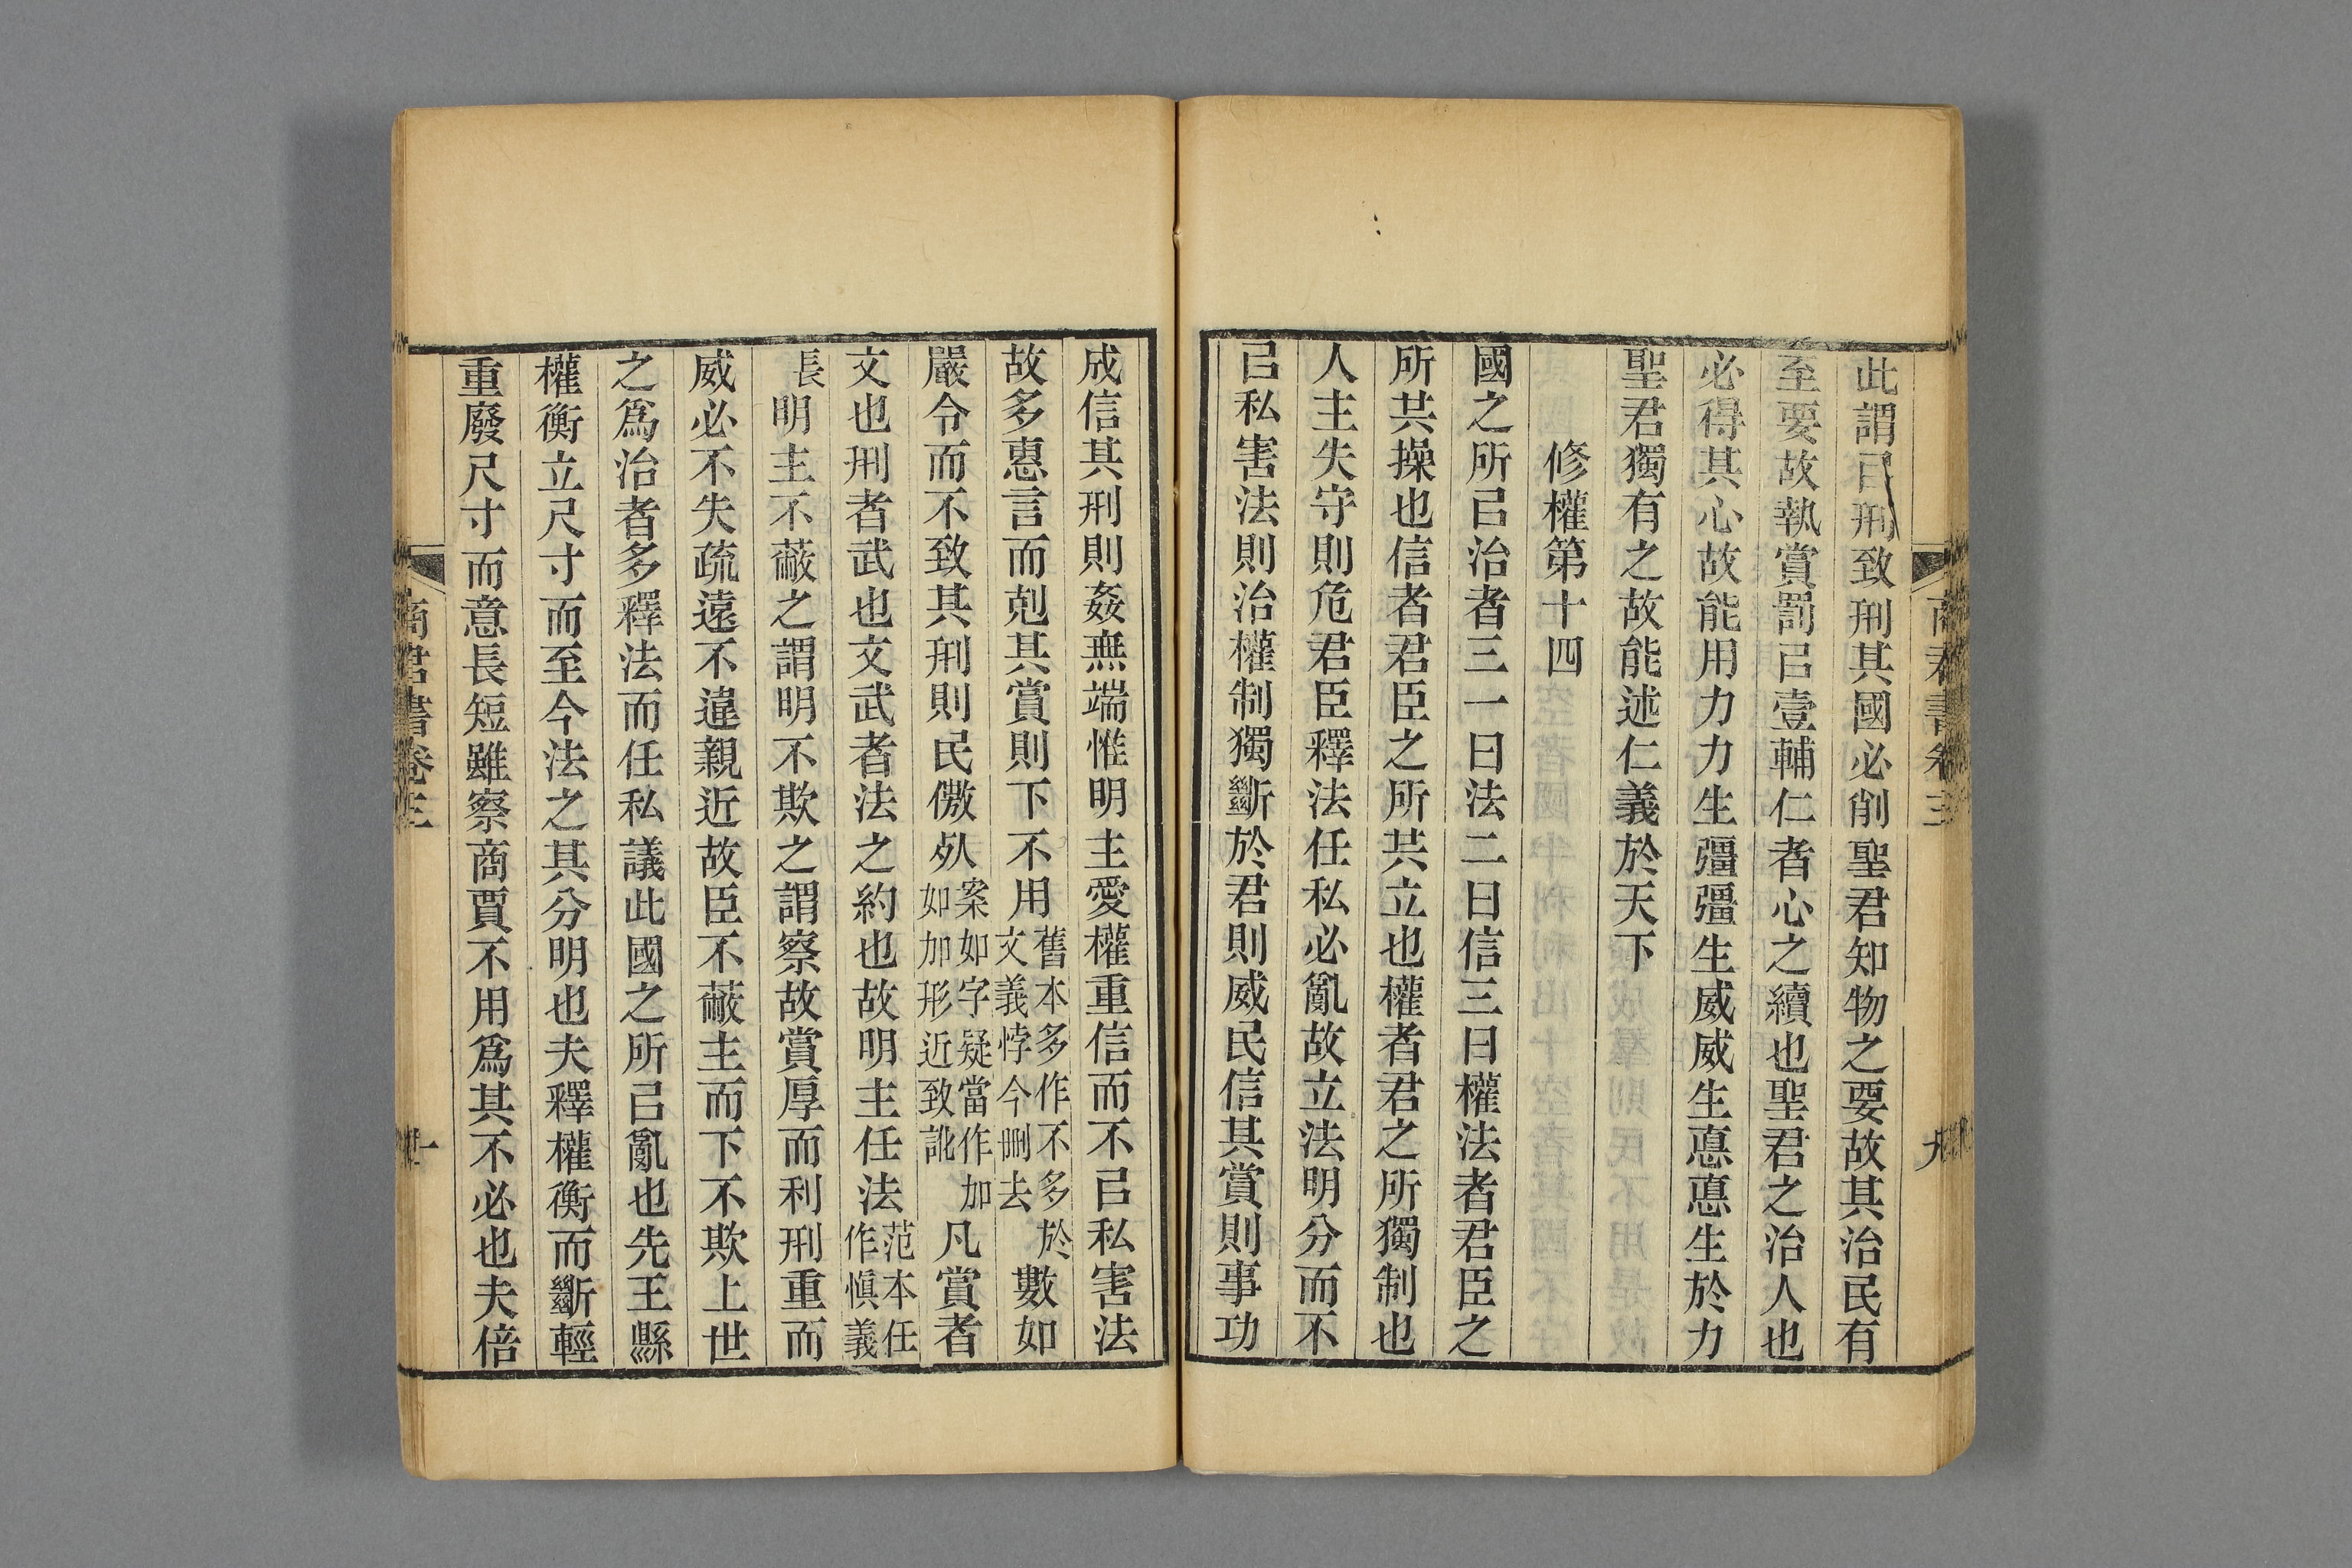 此謂㠯刑致刑其國必削聖君知物之要故其治民有
至要故執賞罰㠯壹輔仁者心之續也聖君之治人也
必得其心故能用力力生彊彊生威威生悳悳生於力
聖君獨有之故能述仁義於天下
修權第十四
國之所㠯治者三一曰法二曰信三曰權法者君臣之
所共操也信者君臣之所共立也權者君之所獨制也
人主失守則危君臣釋法任私必亂故立法明分而不
㠯私害法則治權制獨斷於君則威民信其賞則事功
成信其刑則姦無端惟明主愛權重信而不㠯私害法
故多惠言而剋其賞則下不用舊本多作不多於文義悖今刪去數如
嚴令而不致其刑則民傲㱾案如字疑當作加如加形近致訛凡賞者
文也刑者武也文武者法之約也故明主任法范本任作愼義
長明主不蔽之謂明不欺之謂察故賞厚而利刑重而
威必不失疏遠不違親近故臣不蔽主而下不欺上世
之爲治者多釋法而任私議此國之所㠯亂也先王縣
權衡立尺寸而至今法之其分明也夫釋權衡而斷輕
重廢尺寸而意長短雖察商賈不用爲其不必也夫倍
商君書卷三
九
商君書卷三
十